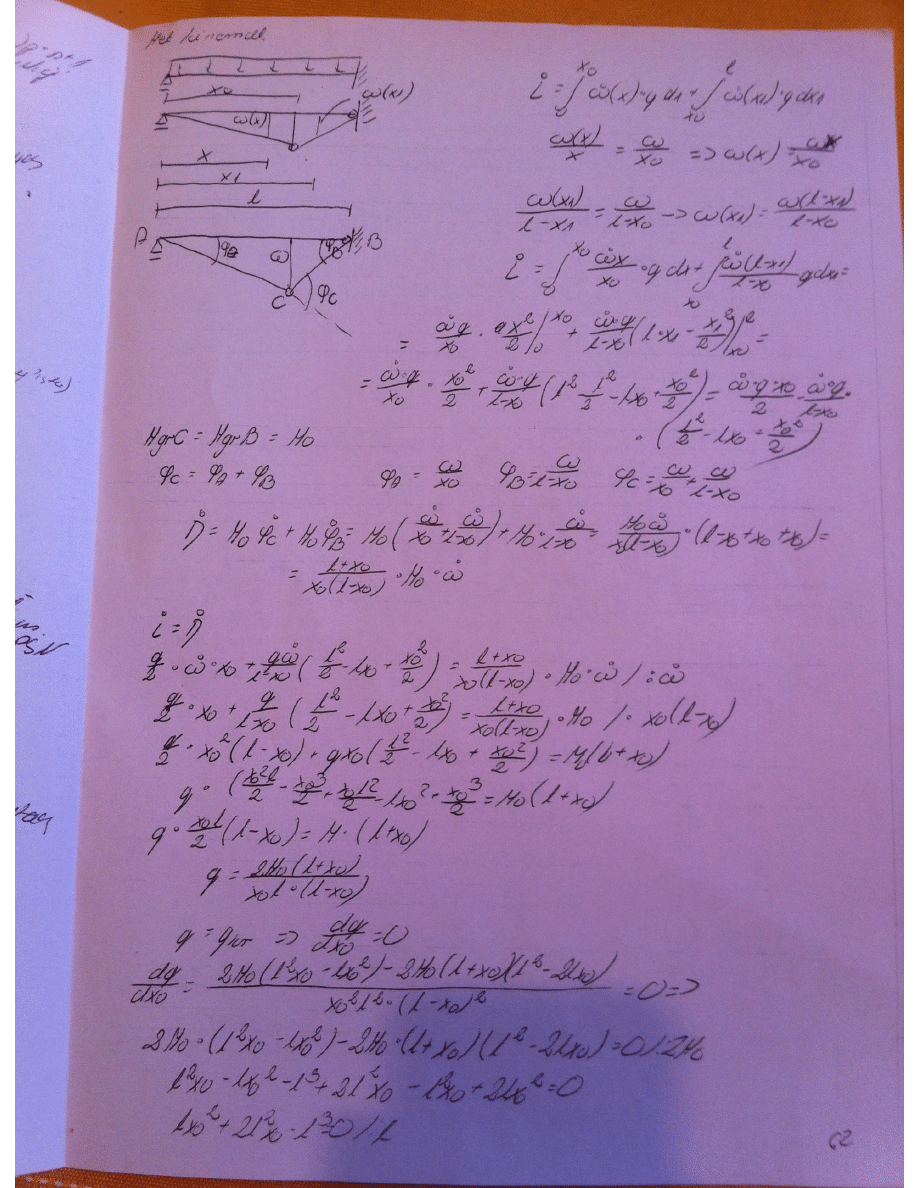 Met kinemat.
x0
ω(x1)
ω(x)
x
x1
l
A φA ω φB B
C φC
L̇ = ∫₀^x0 ω̇(x)·q dx + ∫_x0^l ω̇(x1)·q dx1
ω(x)/x = ω/x0 => ω(x) = ωx/x0
ω(x1)/(l-x1) = ω/(l-x0) -> ω(x1) = ω(l-x1)/(l-x0)
L̇ = ∫₀^x0 ω̇x/x0 · q dx + ∫_x0^l ω̇(l-x1)/(l-x0) q dx1 =
= ω̇q/x0 · x²/2 |₀^x0 + ω̇·q/(l-x0) (l·x1 - x1²/2)|_x0^l =
= ω̇·q/x0 · x0²/2 + ω̇·q/(l-x0) (l² - l²/2 - lx0 + x0²/2) = ω̇·q·x0/2 + ω̇·q/(l-x0) ·
· (l²/2 - lx0 + x0²/2)
MgrC = MgrB = M0
φC = φA + φB φA = ω/x0 φB = ω/(l-x0) φC = ω/x0 + ω/(l-x0)
Ḋ = M0 φ̇C + M0 φ̇B = M0 (ω̇/x0 + ω̇/(l-x0)) + M0 · ω̇/(l-x0) = M0ω̇/(x0(l-x0)) · (l-x0+x0+x0) =
= (l+x0)/(x0(l-x0)) · M0 · ω̇
L̇ = Ḋ
q/2 · ω̇ · x0 + qω̇/(l-x0) (l²/2 - lx0 + x0²/2) = (l+x0)/(x0(l-x0)) · M0 · ω̇ / : ω̇
q/2 · x0 + q/(l-x0) (l²/2 - lx0 + x0²/2) = (l+x0)/(x0(l-x0)) · M0 / · x0(l-x0)
q/2 · x0²(l-x0) + qx0(l²/2 - lx0 + x0²/2) = M0(l+x0)
q · (x0²l/2 - x0³/2 + x0l²/2 - lx0² + x0³/2 = M0(l+x0)
q · x0l/2 (l-x0) = M · (l+x0)
q = 2M0(l+x0)/(x0l·(l-x0))
q = qgr => dq/dx0 = 0
dq/dx0 = (2M0(l²x0 - lx0²) - 2M0(l+x0)(l² - 2lx0))/(x0²l²·(l-x0)²) = 0 =>
2M0·(l²x0 - lx0²) - 2M0·(l+x0)(l² - 2lx0) = 0 /:2M0
l²x0 - lx0² - l³ + 2l²x0 - l²x0 + 2lx0² = 0
lx0² + 2l²x0 - l³ = 0 /:l
62